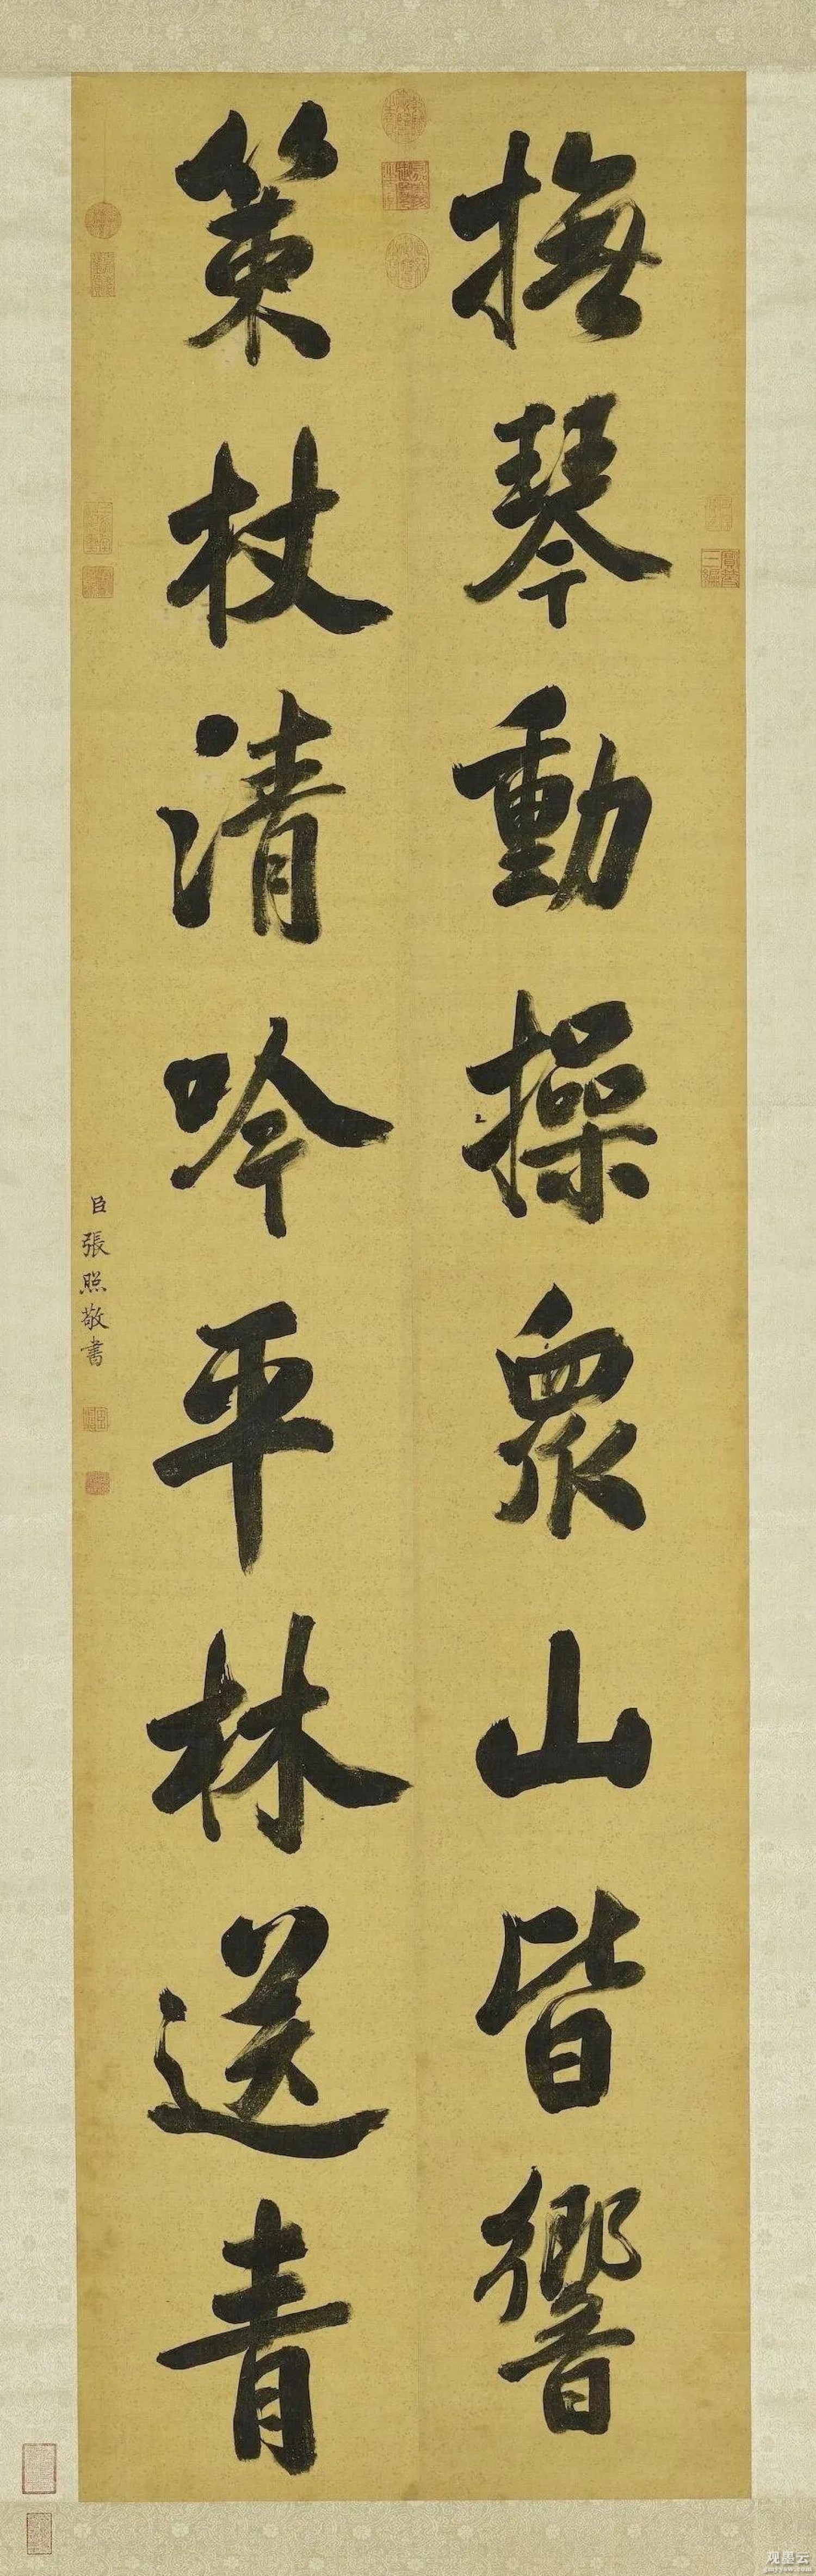 撫琴動操眾山皆響
策杖清吟平林送青
臣張照敬書
观墨云